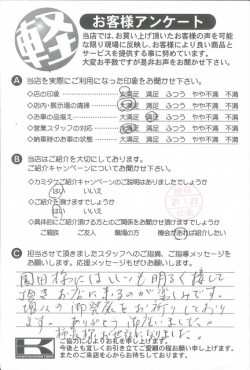 軽
お客様アンケート
当店では、お買い上げ頂いたお客様の声を可能
な限り現場に反映し、お客様により良い商品と
サービスを提供する事に努めています。
大変お手数ですが是非お声をお聞かせ下さい。
A 当店を実際にご利用になった印象をお聞かせ下さい。
◇店の印象 大満足 満足 ふつう やや不満 不満
◇店内・展示場の清掃 大満足 満足 ふつう やや不満 不満
◇お車の品揃え 大満足 満足 ふつう やや不満 不満
◇営業スタッフの対応 大満足 満足 ふつう やや不満 不満
◇納車時の状態 大満足 満足 ふつう やや不満 不満
B 当店はご紹介を大切にしております。
ご紹介キャンペーンについてお聞かせ下さい。
◇カミタケご紹介キャンペーンのご説明はありましたでしょうか
はい いいえ
◇ご紹介を頂けますでしょうか
はい いいえ
◇具体的にご紹介頂ける方とのご関係をお聞かせ頂けますでしょうか
ご親族 ご友人 職場の方 機会があれば紹介したい
C 担当させて頂きましたスタッフへのご指摘、ご指導メッセージを
お願いします。応援メッセージもぜひお願いします。
にはいつも明るく接して
頂きお店に来るのが楽しみです。
をお祈りしており
ます。ありがとうございました。
お世話になりました。
ご協力に心よりお礼を申し上げます。
今後とも宜しくお引き立てご愛顧の程お願い申し上げます。
またのご来店を心からお待ちしております。